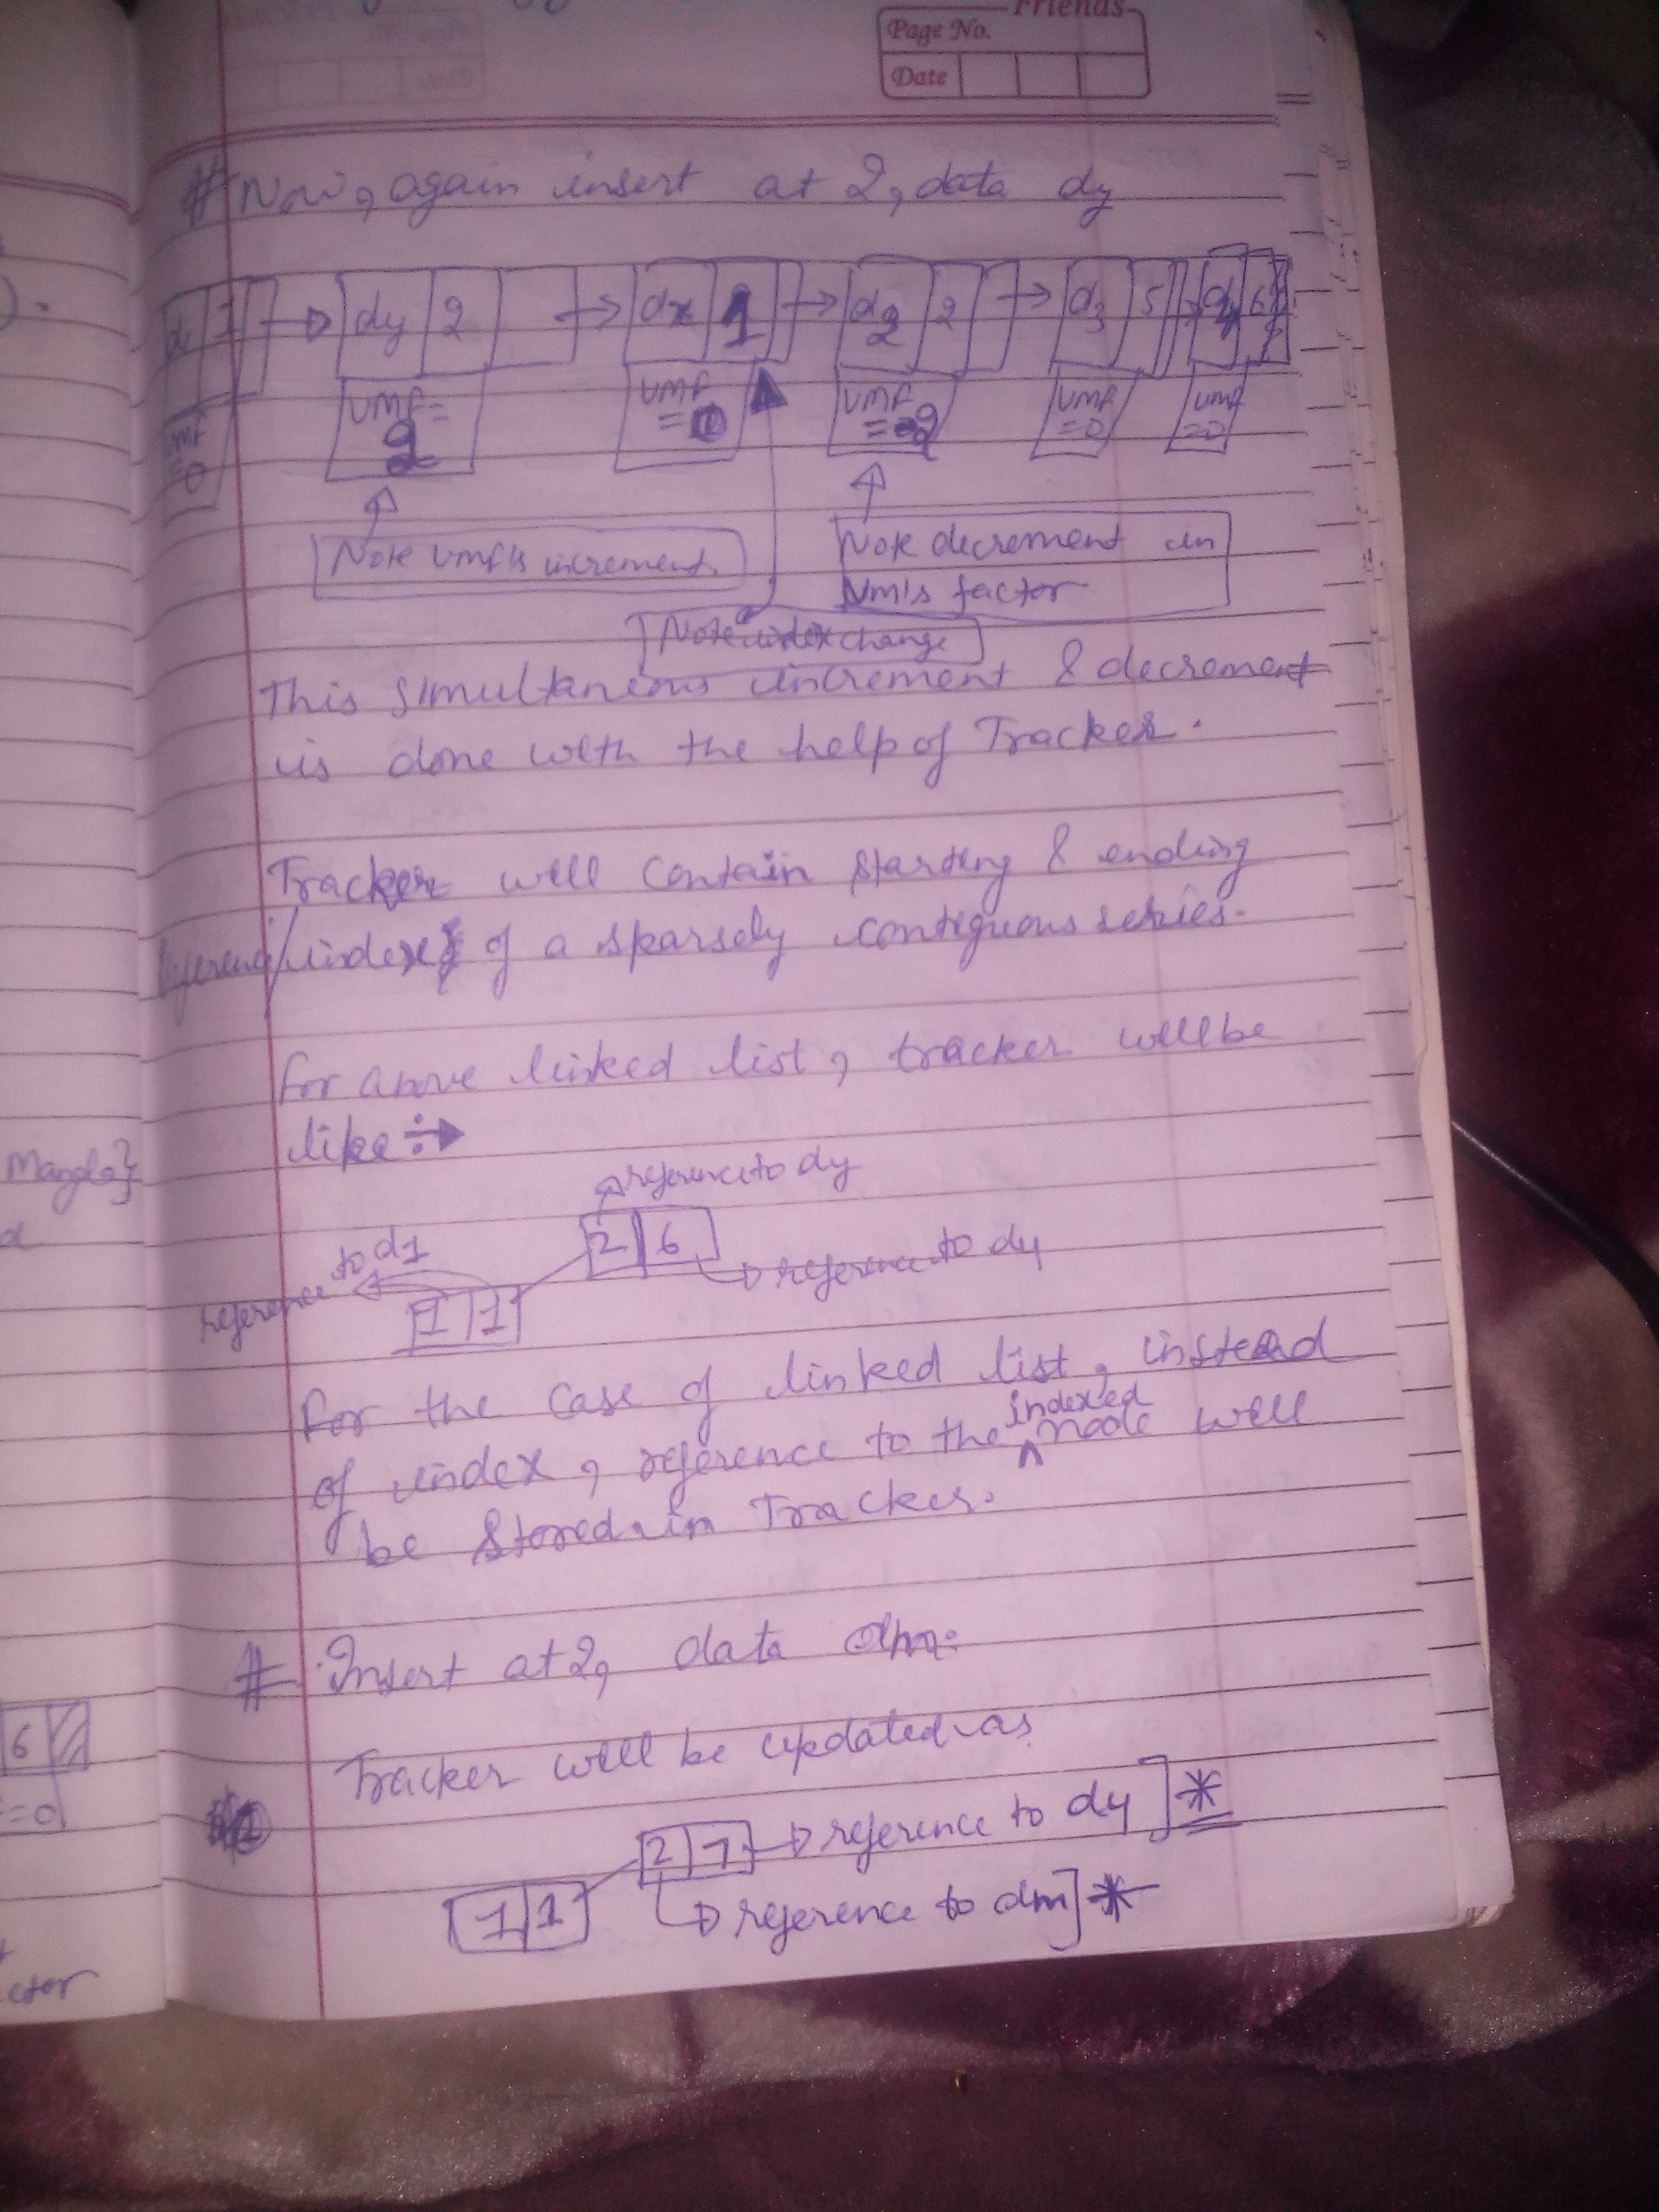 Friends
Page No.
Date
# Now, again insert at 2, data dy
d 1 → dy 2 → dx 1 → d2 2 → d3 5 → d4 6
VMF = 2
VMF =
VMF =
VMF =0
VMF =0
MF =0
Note VMF's increment.
Note decrement in
VM's factor
Note index change
This simultaneous increment & decrement
is done with the help of Tracker.
Tracker will contain starting & ending
/indexes of a sparsely contiguous series.
For above linked list, tracker will be
like ÷→
reference to dy
2 6
reference to d4
reference to d1
1 1
For the case of linked list, instead
of index, reference to the indexed node will
be stored in Tracker.
# Insert at 2, data dm.
Tracker will be updated as
2 7 → reference to d4 ] *
1 1
reference to dm ] *
6
=0
ctor